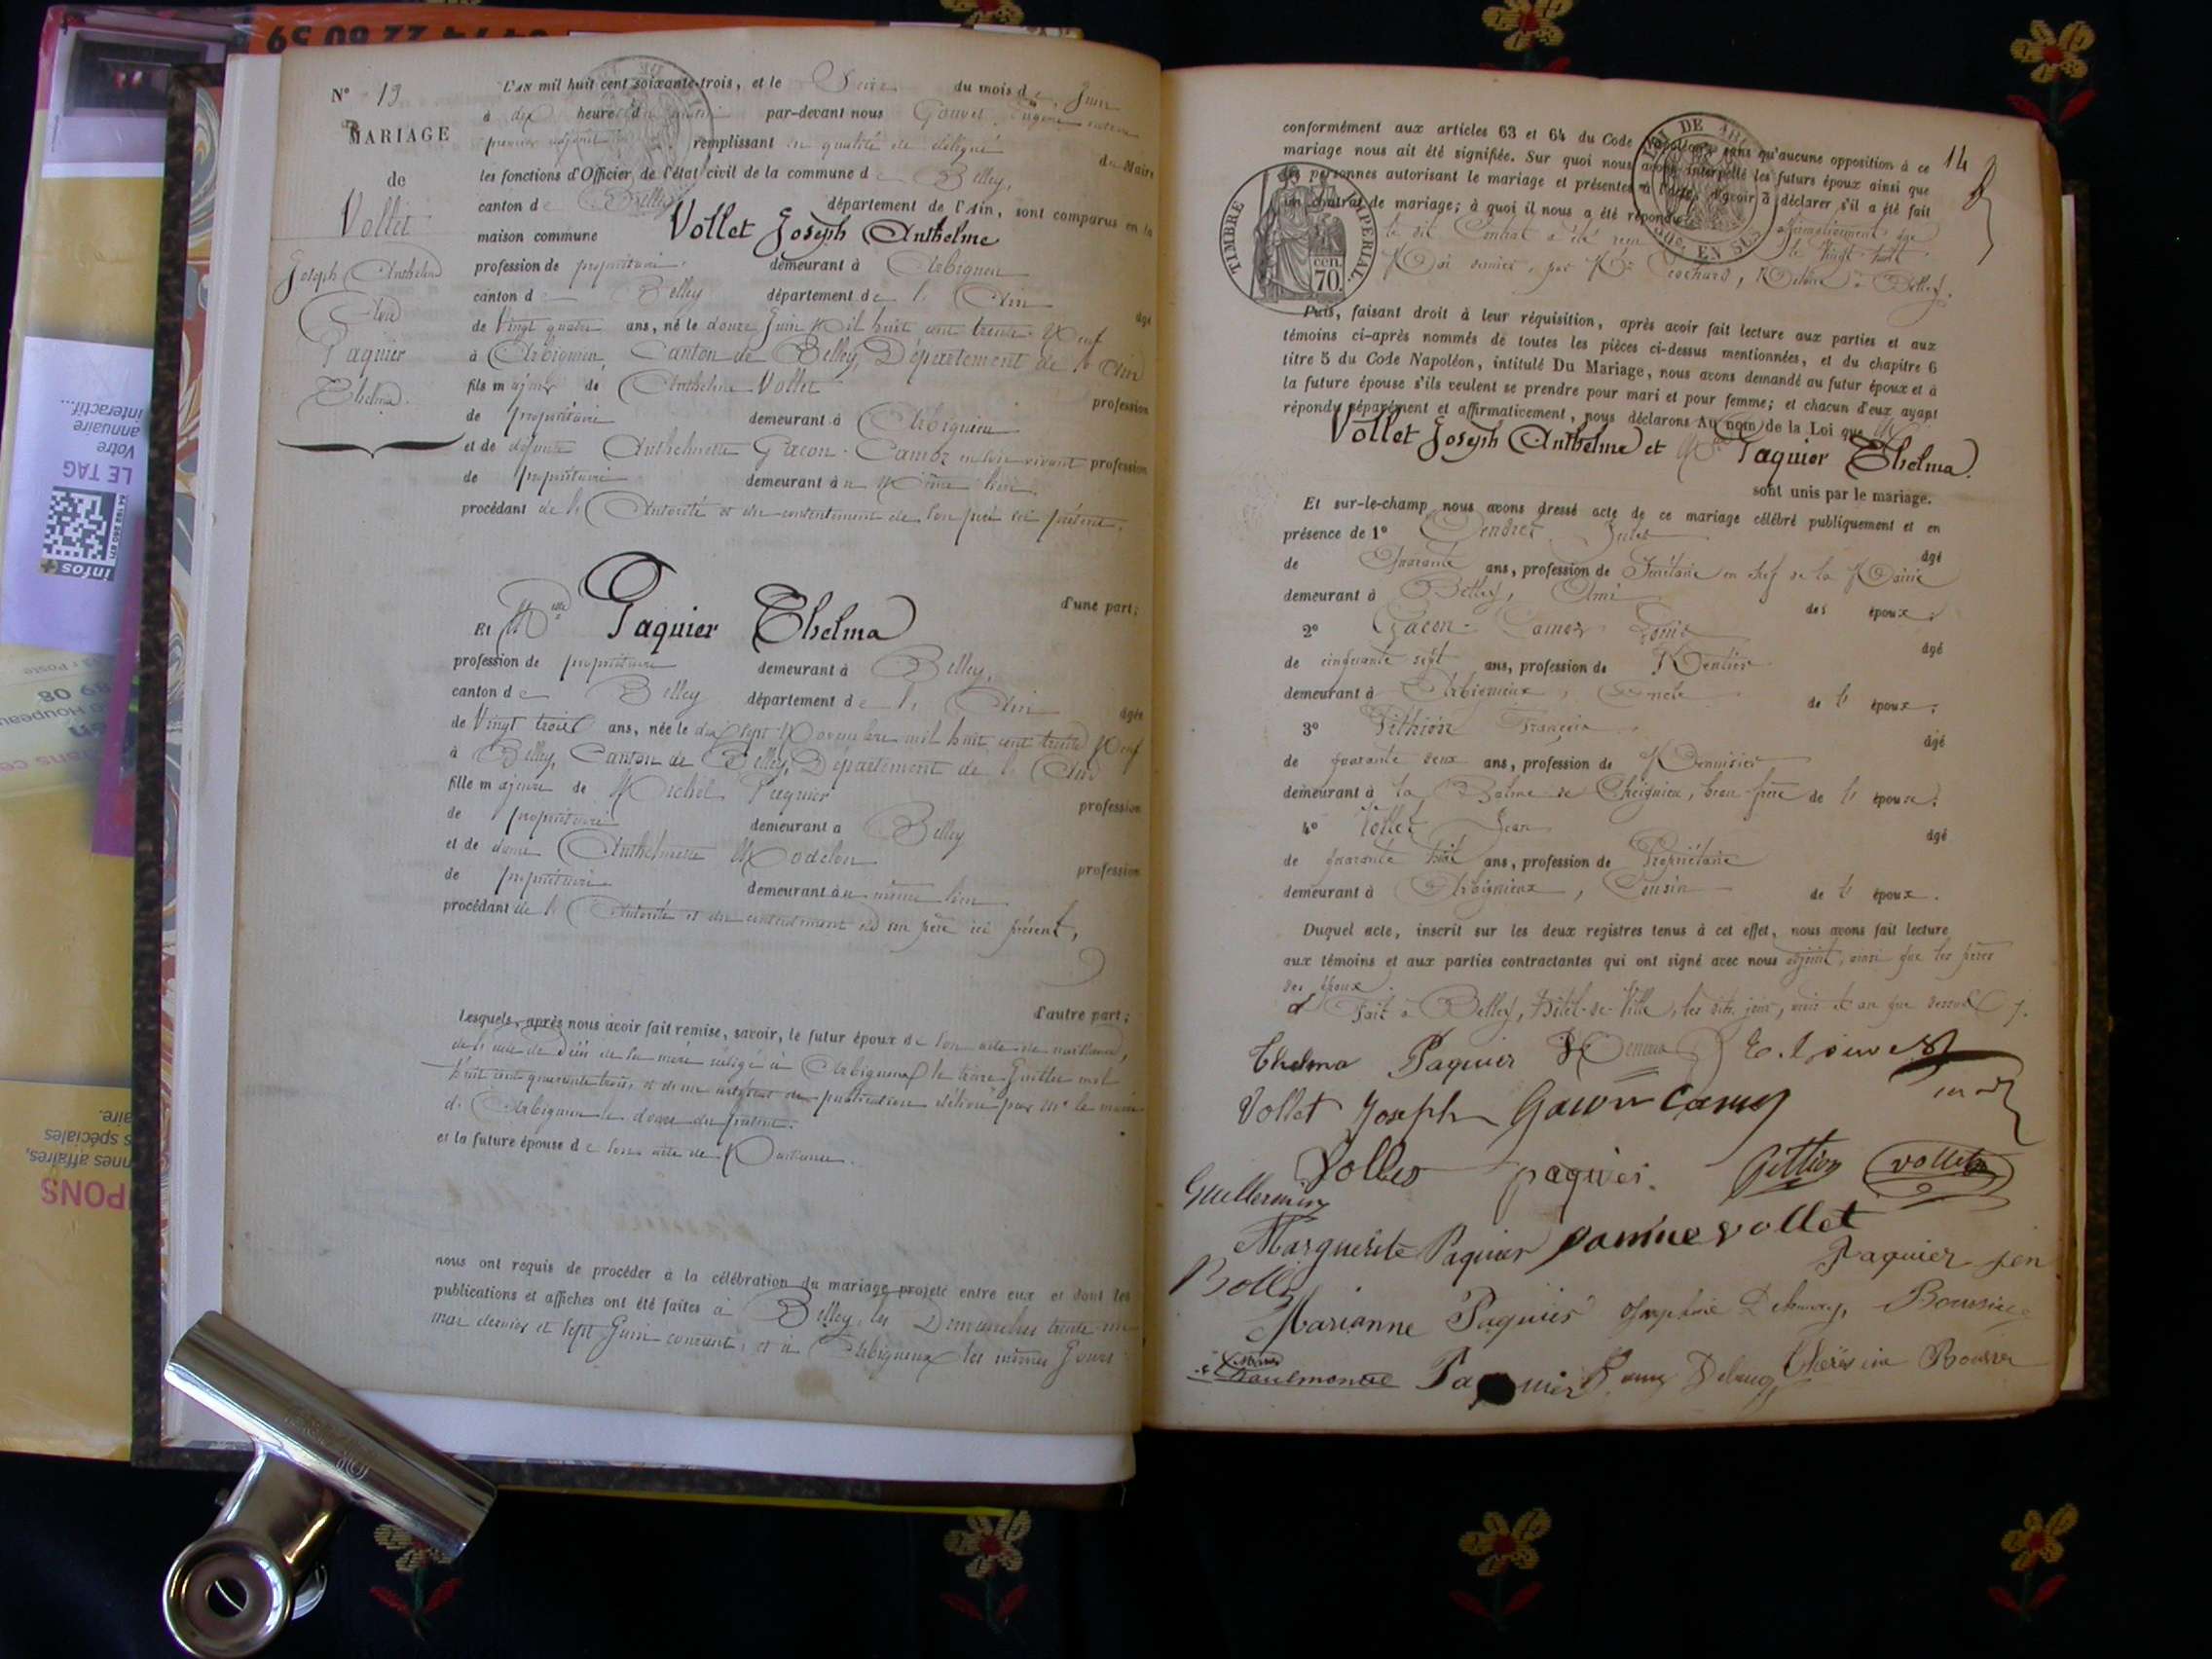 N° 13
MARIAGE
de
Vollet
Joseph Anthelme
Et de
Paquier
Thelma.
L'AN mil huit cent soixante-trois, et le Seize du mois de Juin
à dix heures du matin par-devant nous Gouvet Eugène
premier adjoint remplissant en qualité de délégué du Maire
les fonctions d'Officier de l'état civil de la commune de Belley,
canton de Belley département de l'Ain, sont comparus en la
maison commune Vollet Joseph Anthelme
profession de propriétaire demeurant à Arbignieu
canton de Belley département de l'Ain âgé
de Vingt quatre ans, né le douze Juin Mil huit cent trente-Neuf
à Arbignieu, Canton de Belley, Département de l'Ain
fils majeur de Anthelme Vollet profession
de propriétaire demeurant à Arbignieu
et de défunte Anthelmette Gacon-Camoz en son vivant profession
de propriétaire demeurant au Même lieu.
procédant de l'Autorité et du consentement de son père ici présent,
d'une part;
Et Melle Paquier Thelma
profession de propriétaire demeurant à Belley,
canton de Belley département de l'Ain âgée
de Vingt trois ans, née le dix sept Novembre mil huit cent trente Neuf
à Belley, Canton de Belley, Département de l'Ain
fille majeure de Michel Paquier profession
de propriétaire demeurant à Belley
et de dame Anthelmette Modelon profession
de propriétaire demeurant au même lieu
procédant de l'Autorité et du consentement de son père ici présent,
d'autre part;
Lesquels, après nous avoir fait remise, savoir, le futur époux de son acte de naissance,
de l'acte de Décès de sa mère rédigé à Arbignieu le treize Juillet mil
huit cent quarante trois, et d'une de publication délivré par Mr le maire
d'Arbignieu le douze du présent.
et la future épouse de son acte de Naissance.
nous ont requis de procéder à la célébration du mariage projeté entre eux et dont les
publications et affiches ont été faites à Belley, les Dimanches trente un
mai dernier et sept Juin courant, et à Arbignieu les mêmes Jours
14
conformément aux articles 63 et 64 du Code Napoléon, sans qu'aucune opposition à ce
mariage nous ait été signifiée. Sur quoi nous avons interpellé les futurs époux ainsi que
les personnes autorisant le mariage et présentes à l'acte, d'avoir à déclarer s'il a été fait
un contrat de mariage; à quoi il nous a été répondu affirmativement que
le dit Contrat a été reçu le Vingt huit
Mai dernier, par Me Cochard, Notaire à Belley.
TIMBRE IMPERIAL.
cen.
70.
Puis, faisant droit à leur réquisition, après avoir fait lecture aux parties et aux
témoins ci-après nommés de toutes les pièces ci-dessus mentionnées, et du chapitre 6
titre 5 du Code Napoléon, intitulé Du Mariage, nous avons demandé au futur époux et à
la future épouse s'ils veulent se prendre pour mari et pour femme; et chacun d'eux ayant
répondu séparément et affirmativement, nous déclarons Au nom de la Loi que
Vollet Joseph Anthelme et Melle Paquier Thelma.
sont unis par le mariage.
Et sur-le-champ nous avons dressé acte de ce mariage célébré publiquement et en
présence de 1° Jules âgé
de Quarante ans, profession de Secrétaire en chef de la Mairie
demeurant à Belley, Ami des époux.
2° Gacon-Camoz Louis âgé
de cinquante sept ans, profession de Rentier
demeurant à Arbignieux, Oncle de l'époux;
3° Pithion François âgé
de quarante deux ans, profession de Menuisier
demeurant à la Balme de beau frère de l'épouse;
4° Vollet Jean âgé
de quarante huit ans, profession de Propriétaire
demeurant à Arbignieux, Cousin de l'époux.
Duquel acte, inscrit sur les deux registres tenus à cet effet, nous avons fait lecture
aux témoins et aux parties contractantes qui ont signé avec nous adjoint, ainsi que les pères
des époux.
Fait à Belley, Hôtel-de-Ville, les dits jour, mois et an que dessus.
Thelma Paquier
Vollet Joseph Gacon Camoz
Vollet paquier. Pittion vollet
Guillermin
Marguerite Paquier vollet
Paquier
Marianne Paquier
Paquier
infos+
LE TAG
Votre
annuaire
interactif...